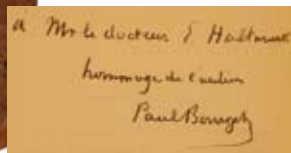 a Mr le docteur E Haltmur
hommage de l'auteur
Paul Bourget